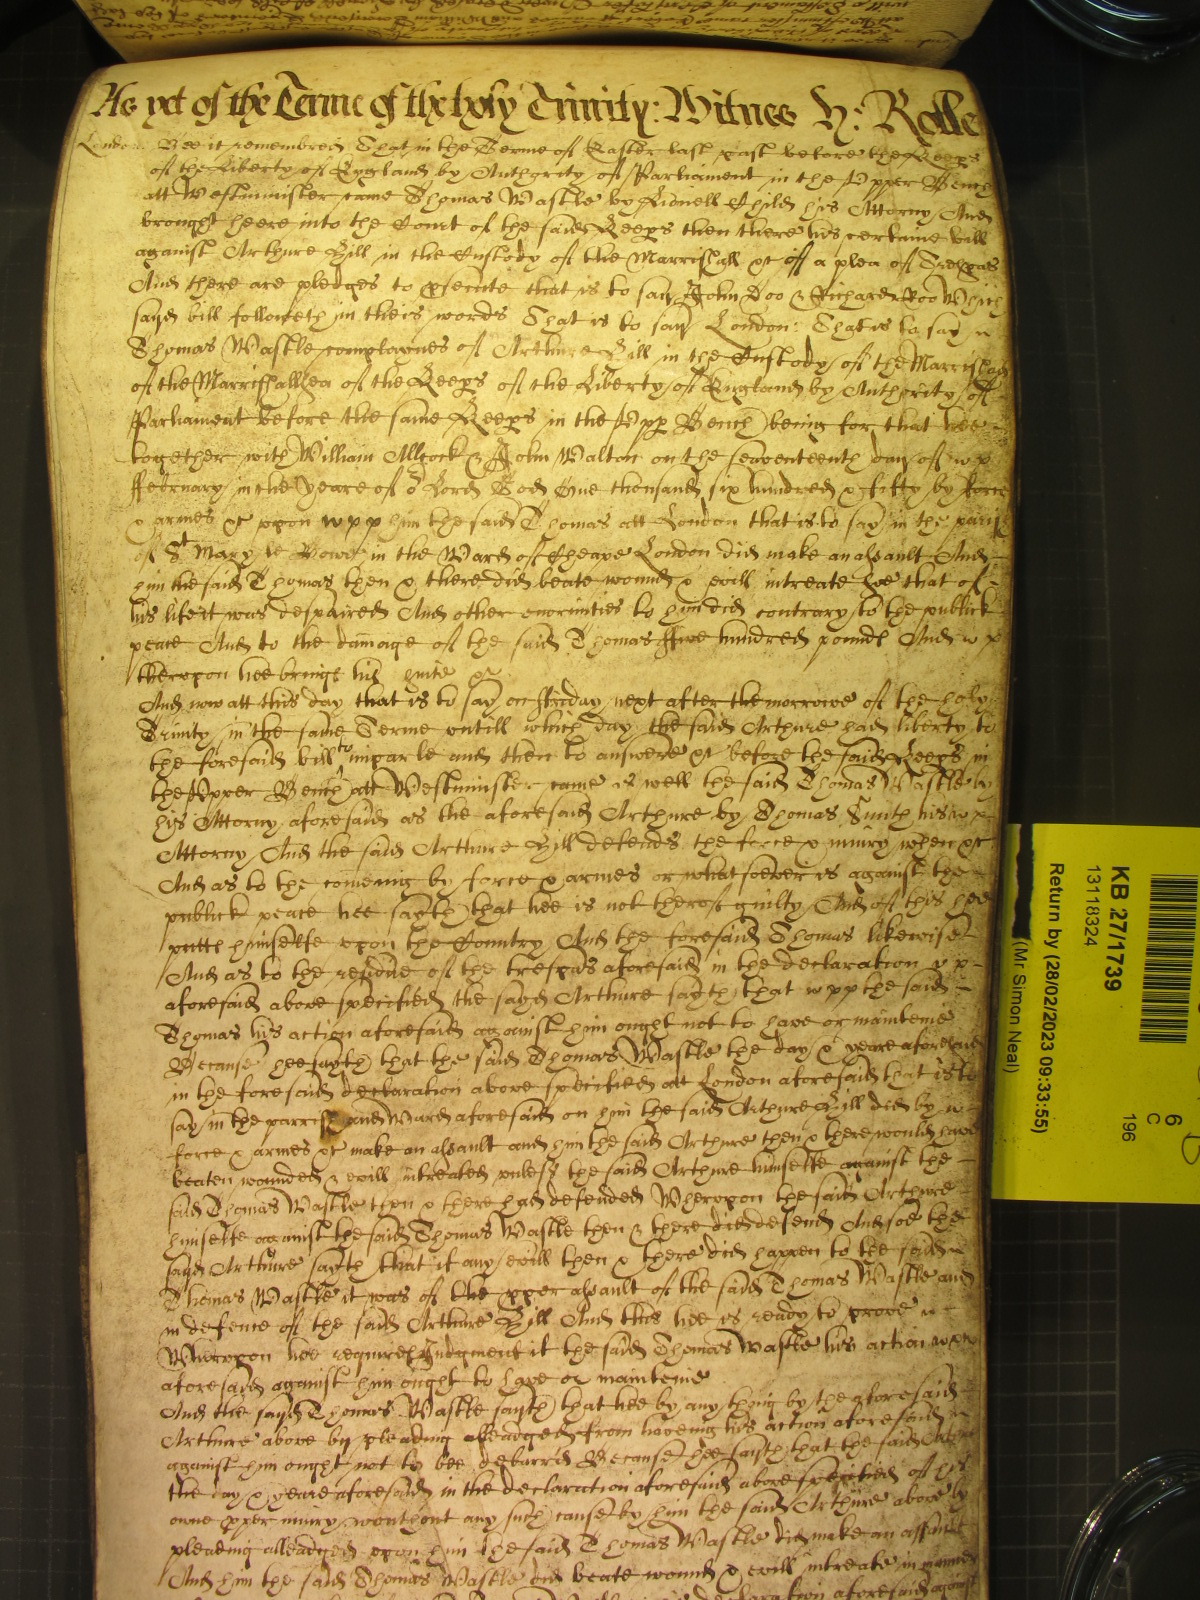 As yet of the Terme of the holy Trinity: Witnes H: Rolle
London Bee it remembred That in the Terme of Easter last past before the Keeps
of the Liberty of England by Authority of Parliament in the Upper Bench
att Westminster came Thomas Wastle by Lionell Child his Attorny And
brought heere into the Court of the said Keeps then there his certaine bill
against Arthure Hill in the Custody of the Marrishall &c of a plea of Trespas
And there are pledges to psecute that is to say John Doo & Richard Roo Which
sayd bill followeth in theis words That is to say London: That is to say
Thomas Wastle complaynes of Arthure Hill in the Custody of the Marrishall
of the Marrishallsea of the Keeps of the Liberty of England by Authority of
Parliament before the same Keeps in the Upp Bench being for that hee
together with William Allcock & John Walton on the seaventeenth day of
ffebruary in the yeare of or Lord God One thousand six hundred & fifty by force
& armes &c upon him the said Thomas att London that is to say in the parish
of St Mary le Bowe in the Ward of Cheape London did make an assault And
him the said Thomas then & there did beate wound & evill intreate soe that of
his life it was despaired And other enormities to him did contrary to the publick
peace And to the damage of the said Thomas ffive hundred pounds And
therupon hee brings his suite &c
And now att this day that is to say on ffriday next after the morrowe of the holy
Trinity in the same Terme untill which day the said Arthure had liberty to
the foresaid bill to imparle and then to answere &c before the said Keeps in
the Upper Bench att Westminster came as well the said Thomas Wastle by
his Attorny aforesaid as the aforesaid Arthure by Thomas Smith his
Attorny And the said Arthure Hill defends the force & iniury when &c
And as to the comeing by force & armes or whatsoever is against the
publick peace hee sayth that hee is not therof guilty And of this hee
putts himselfe upon the Country And the foresaid Thomas likewise
And as to the residue of the trespas aforesaid in the declaration
aforesaid above specified the sayd Arthure sayth that the said
Thomas his action aforesaid against him ought not to have or mainteine
Because hee sayth that the said Thomas Wastle the day & yeare aforesaid
in the foresaid declaration above specified att London aforesaid that is to
say in the parrish and Ward aforesaid on him the said Arthure Hill did by
force & armes &c make an assault and him the said Arthure then & there would have
beaten wounded & evill intreated unless the said Arthure himselfe against the
said Thomas Wastle then & there had defended Wherupon the said Arthure
himselfe against the said Thomas Wastle then & there did defend And soe the
sayd Arthure sayth that if any evill then & there did happen to the said
Thomas Wastle it was of the pper assault of the said Thomas Wastle and
in defence of the said Arthure Hill And this hee is ready to prove
Wherupon hee requires Judgment if the said Thomas Wastle his action
aforesaid against him ought to have or mainteine
And the sayd Thomas Wastle sayth that hee by any thing by the aforesaid
Arthure above by pleading alleadged from haveing his action aforesaid
against him ought not to bee debarred Because hee saith that the said Arthure
the day & yeare aforesaid in the declaration aforesaid above specified of his
owne pper iniury without any such cause by him the said Arthure above by
pleading alleadged upon him the said Thomas Wastle did make an assault
And him the said Thomas Wastle did beate wound & evill intreate in manner
declaration aforesaid against
KB 27/1739
13118324
Return by (28/02/2023 09:33:55)
(Mr Simon Neal)
6
C
196